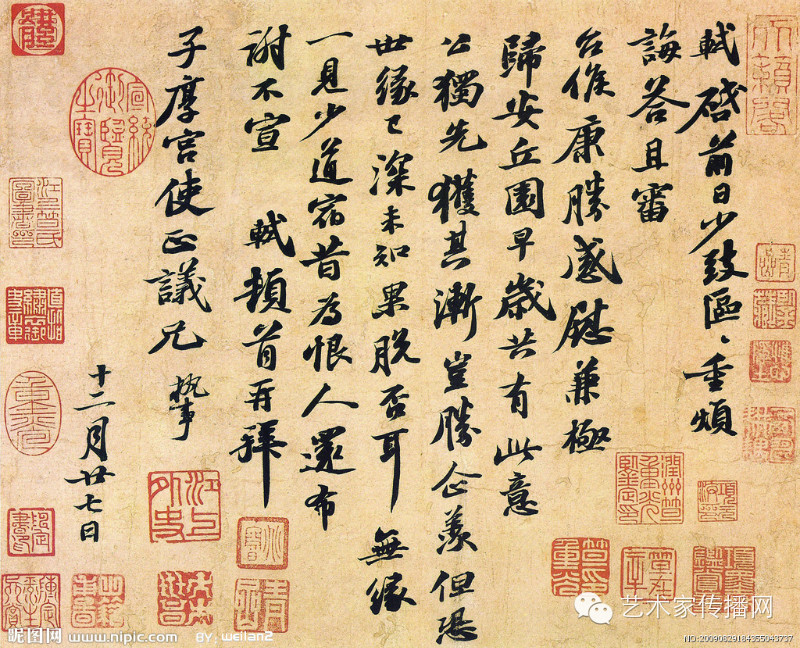 軾啓前日少致區〻重煩
誨荅且審
台候康勝感慰兼極
歸安丘園早歲共有此意
公獨先獲其漸豈勝企羨但恐
世緣已深未知果脫否耳無緣
一見少道宿昔為恨人還布
謝不宣 軾頓首再拜
子厚宮使正議兄 執事
十二月廿七日
宣統御覽之寶
江上外史
艺术家传播网
昵图网 www.nipic.com BY: weilan2
NO:20090829184355043737